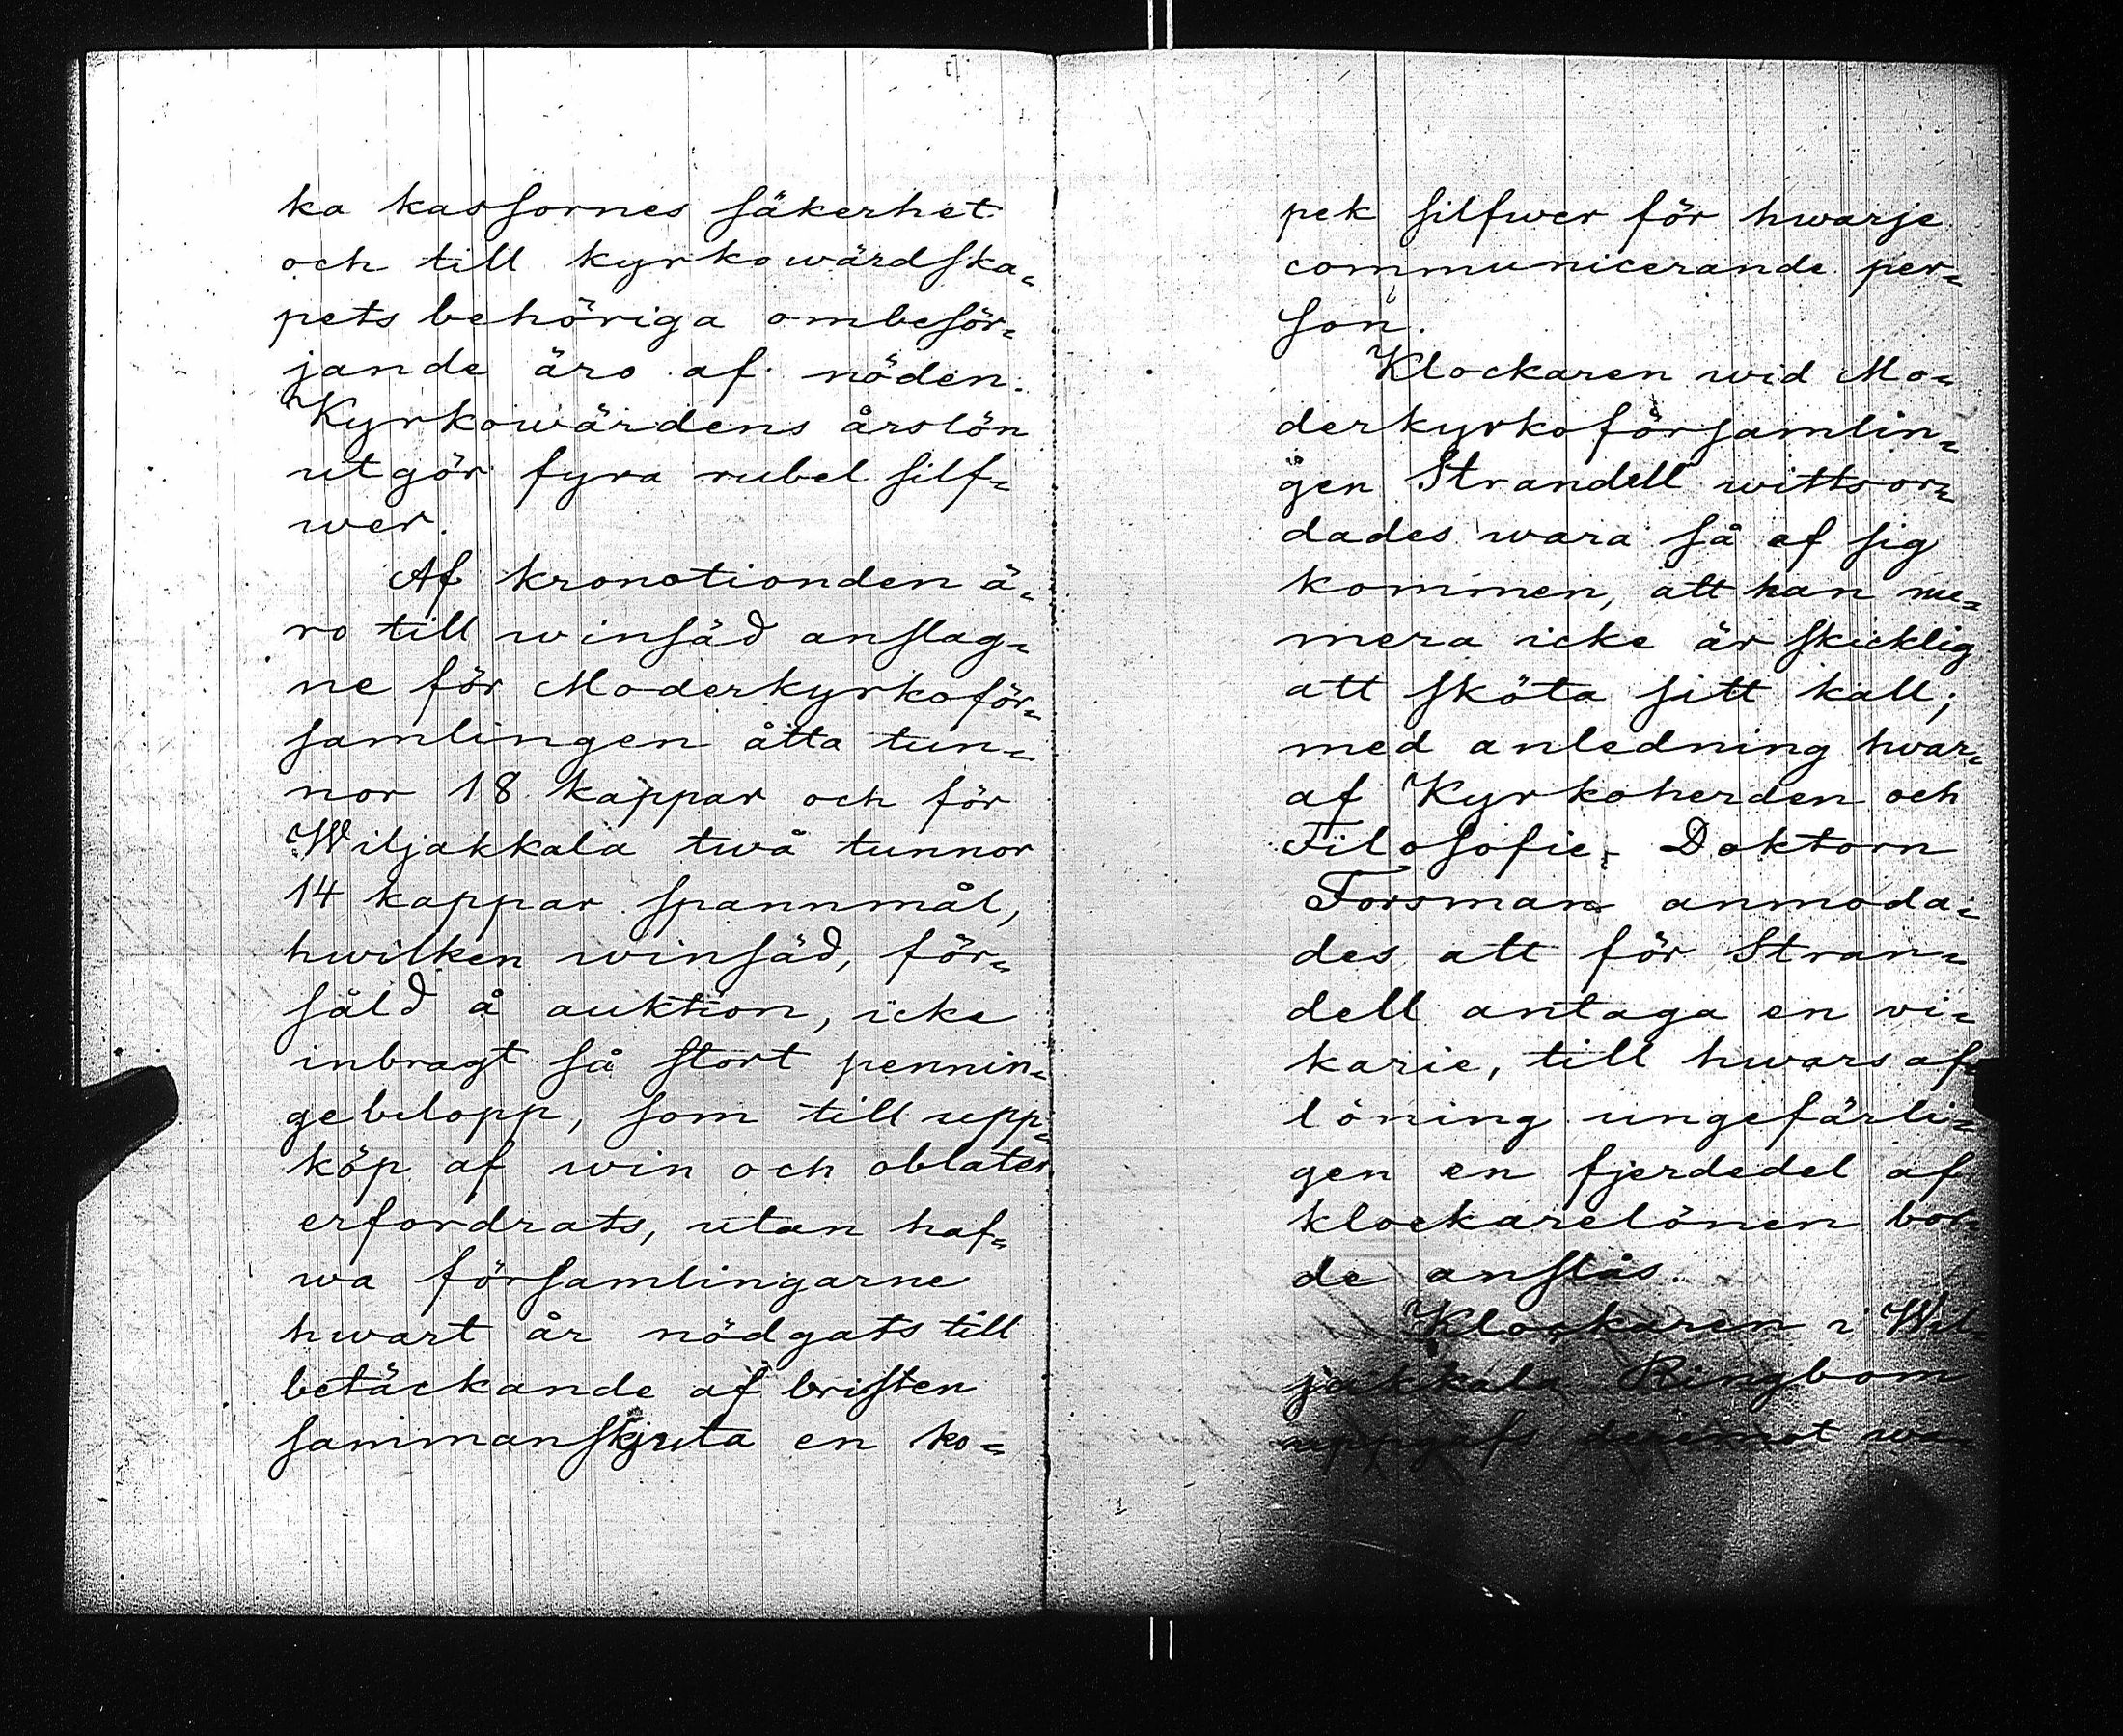 ka kassornes säkerhet
och till kyrkowärdska-
pets behöriga ombesör-
jande äro af nöden.
Kyrkowärdens årslön
utgör fyra rubel silf-
wer.
Af kronotionden ä-
ro till winsäd anslag-
ne för Moderkyrkoför-
samlingen åtta tun-
nor 18 kappar och för
Wiljakkala twå tunnor
14 kappar spannmål,
hwilken winsäd, för-
såld å auktion, icke
inbragt så stort pennin-
gebelopp, som till upp-
köp af win och oblater
erfordrats, utan haf-
wa församlingarne
hwart år nödgats till
betäckande af bristen
sammanskjuta en ko-
pek silfwer för hwarje
communicerande per-
son.
Klockaren wid Mo-
derkyrkoförsamlin-
gen Strandell wittsor-
dades wara så af sig
kommen, att han nu-
mera icke är skicklig
att sköta sitt kall;
med anledning hwar-
af Kyrkoherden och
Filosofie- Doktorn
Forsman anmoda-
des att för Stran-
dell antaga en vi-
karie, till hwars af-
löning ungefärli-
gen en fjerdedel af
klockarelönen bor-
de anslås.
Klockaren i Wil-
jakkala Ringbom
uppgafs deremot wa-